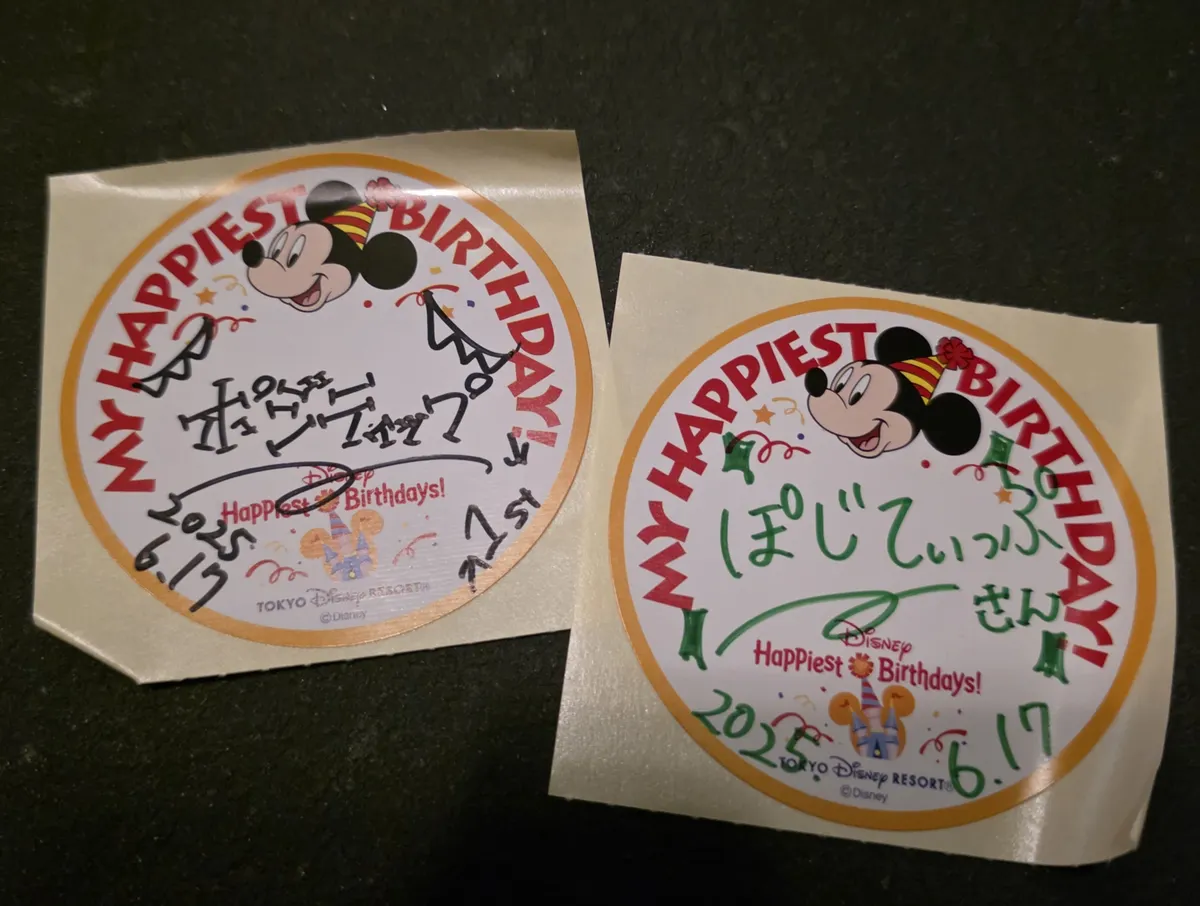 MY HAPPIEST BIRTHDAY!
ポジティブ
2025.
6.17
1st
Disney
Happiest Birthdays!
TOKYO Disney RESORT®
©Disney
MY HAPPIEST BIRTHDAY!
ぽじてぃっぷ
さん
Disney
Happiest Birthdays!
2025.
6.17
TOKYO Disney RESORT®
©Disney